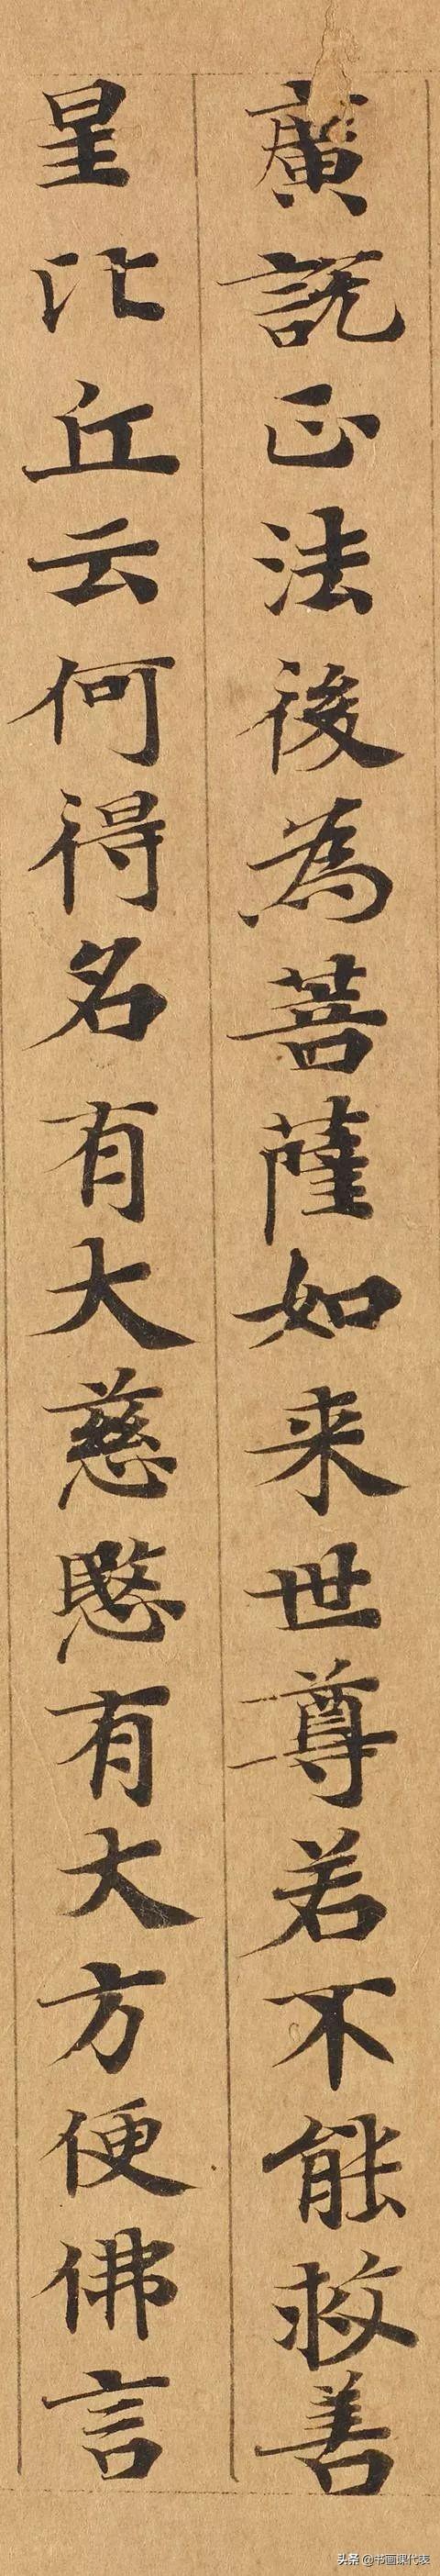 廣説正法後為菩薩如来世尊若不能救善
星比丘云何得名有大慈愍有大方便佛言
头条 @书画课代表